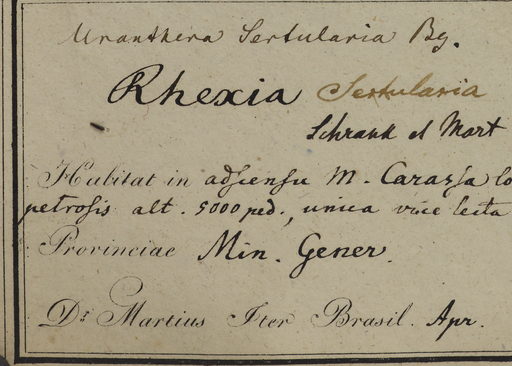 Uranthera Sertularia Bg.
Rhexia Sertularia
Schrank et Mart
Habitat in adscensu M. Carazsa lo
petrosis alt. 5000 ped., unica vice lecta
Provinciae Min. Gener.
Dr. Martius Iter Brasil. Apr.